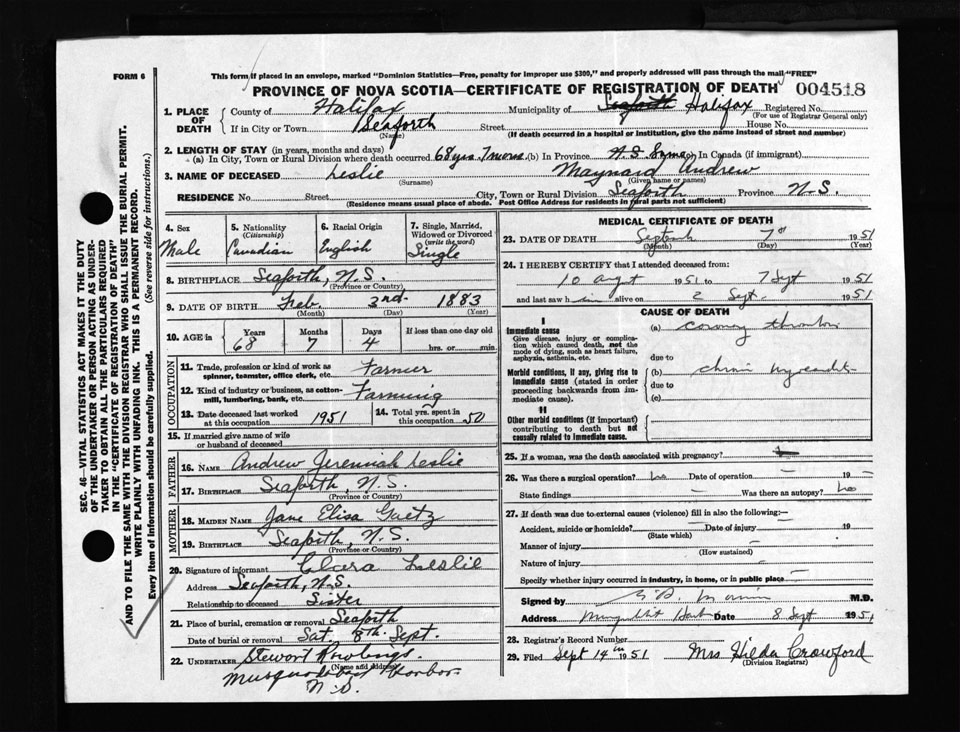 FORM 6
This form if placed in an envelope, marked "Dominion Statistics—Free, penalty for improper use $300," and properly addressed will pass through the mail "FREE"
PROVINCE OF NOVA SCOTIA—CERTIFICATE OF REGISTRATION OF DEATH 004518
1. PLACE OF DEATH
County of Halifax Municipality of Seaforth Halifax Registered No.
(For use of Registrar General only)
If in City or Town Seaforth Street House No.
(Name) (If death occurred in a hospital or institution, give the name instead of street and number)
2. LENGTH OF STAY (in years, months and days)
(a) In City, Town or Rural Division where death occurred 68 yrs. 7 mons. (b) In Province N.S. Same or In Canada (if immigrant)
3. NAME OF DECEASED Leslie Maynard Andrew
(Surname) (Given name or names)
RESIDENCE No. Street City, Town or Rural Division Seaforth Province N.S.
(Residence means usual place of abode. Post Office Address for residents in rural parts not sufficient)
4. Sex 5. Nationality (Citizenship) 6. Racial Origin 7. Single, Married, Widowed or Divorced (write the word)
Male Canadian English Single
8. BIRTHPLACE Seaforth, N.S.
(Province or Country)
9. DATE OF BIRTH Feb. 3rd. 1883
(Month) (Day) (Year)
10. AGE in Years Months Days If less than one day old
68 7 4 hrs. or min.
OCCUPATION
11. Trade, profession or kind of work as spinner, teamster, office clerk, etc. Farmer
12. Kind of industry or business, as cotton-mill, lumbering, bank, etc. Farming
13. Date deceased last worked at this occupation 1951 14. Total yrs. spent in this occupation 50
15. If married give name of wife or husband of deceased
FATHER
16. NAME Andrew Jeremiah Leslie
17. BIRTHPLACE Seaforth, N.S.
(Province or Country)
MOTHER
18. MAIDEN NAME Jane Elisa Gaetz
19. BIRTHPLACE Seaforth, N.S.
(Province or Country)
20. Signature of informant Clara Leslie
Address Seaforth, N.S.
Relationship to deceased Sister
21. Place of burial, cremation or removal Seaforth
Date of burial or removal Sat. 8th. Sept.
22. UNDERTAKER Stewart Rowlings
(Name and address)
Musquodoboit Harbor
N.S.
MEDICAL CERTIFICATE OF DEATH
23. DATE OF DEATH Septemb 7th 1951
(Month) (Day) (Year)
24. I HEREBY CERTIFY that I attended deceased from:
10 augt 1951 to 7 Sept 1951
and last saw him alive on 2 Sept. 1951
CAUSE OF DEATH
I
Immediate cause
Give disease, injury or complication which caused death, not the mode of dying, such as heart failure, asphyxia, asthenia, etc.
(a) coronary thrombosis
due to
Morbid conditions, if any, giving rise to immediate cause (stated in order proceeding backwards from immediate cause).
(b) chronic myocarditis
due to
(c)
II
Other morbid conditions (if important) contributing to death but not causally related to immediate cause.
25. If a woman, was the death associated with pregnancy?
26. Was there a surgical operation? No Date of operation — 19 —
State findings — Was there an autopsy? No
27. If death was due to external causes (violence) fill in also the following:—
Accident, suicide or homicide? — Date of injury 19
(State which)
Manner of injury
(How sustained)
Nature of injury
Specify whether injury occurred in industry, in home, or in public place —
Signed by M.D.
Address Musquodoboit Harbor Date 8 Sept 1951
28. Registrar's Record Number
29. Filed Sept 14th 1951 Mrs Hilda Crawford
(Division Registrar)
SEC. 46—VITAL STATISTICS ACT MAKES IT THE DUTY
OF THE UNDERTAKER OR PERSON ACTING AS UNDER-
TAKER TO OBTAIN ALL THE PARTICULARS REQUIRED
IN THE "CERTIFICATE OF REGISTRATION OF DEATH"
AND TO FILE THE SAME WITH THE DIVISION REGISTRAR WHO SHALL ISSUE THE BURIAL PERMIT.
WRITE PLAINLY WITH UNFADING INK. THIS IS A PERMANENT RECORD.
Every item of information should be carefully supplied. (See reverse side for instructions.)